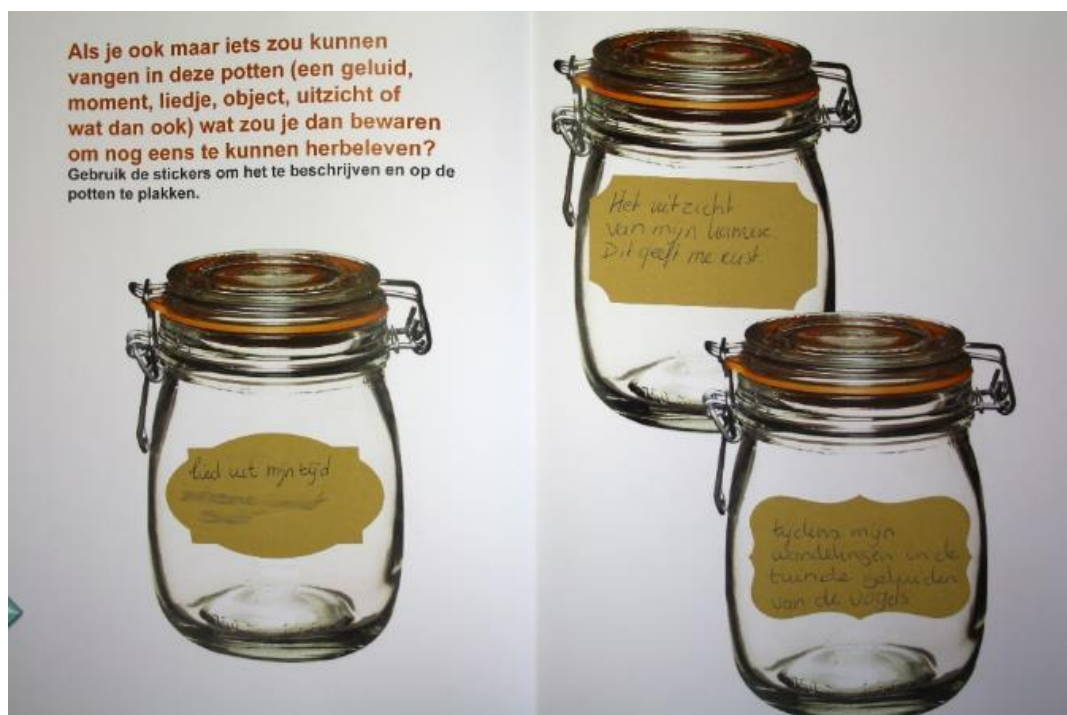 Als je ook maar iets zou kunnen
vangen in deze potten (een geluid,
moment, liedje, object, uitzicht of
wat dan ook) wat zou je dan bewaren
om nog eens te kunnen herbeleven?
Gebruik de stickers om het te beschrijven en op de
potten te plakken.
lied uit mijn tijd
Het uitzicht
van mijn kamer.
Dit geeft me rust.
tijdens mijn
wandelingen in de
tuin de geluiden
van de vogels